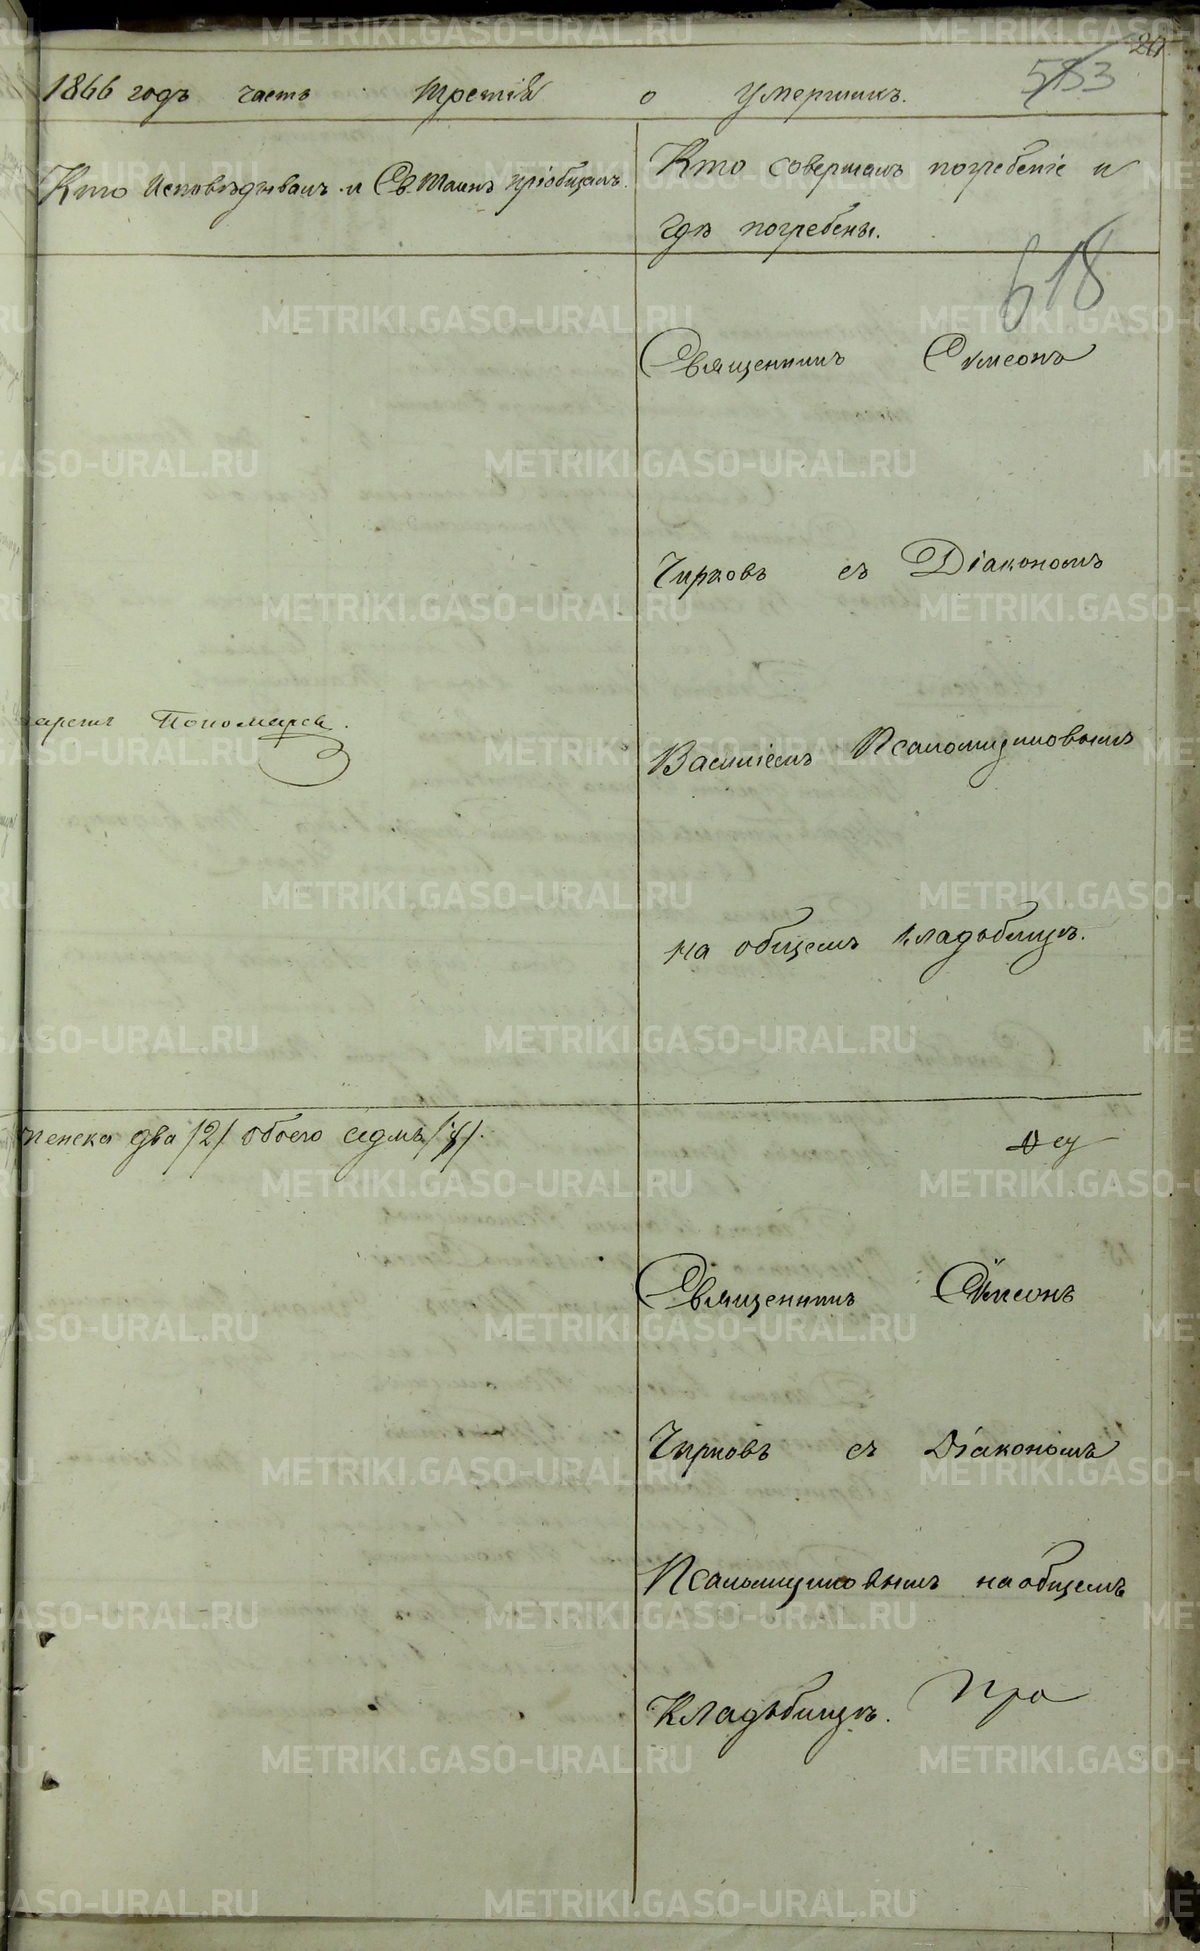 20
1866 годъ часть третiя о умершихъ. 553
Кто исповѣдывалъ и Св. Таинъ прiобщалъ.
Кто совершалъ погребенiе и
гдѣ погребены.
618
Священникъ Симеонъ
Чирковъ съ Дiакономъ
Пономарев.
Василiемъ Псаломщиковымъ
на общемъ кладьбищѣ.
женска два /2/ обоего седмь /7/.
Священникъ Симеонъ
Чирковъ съ Дiакономъ
Псаломщиковымъ на общемъ
Кладьбищѣ. Про
METRIKI.GASO-URAL.RU